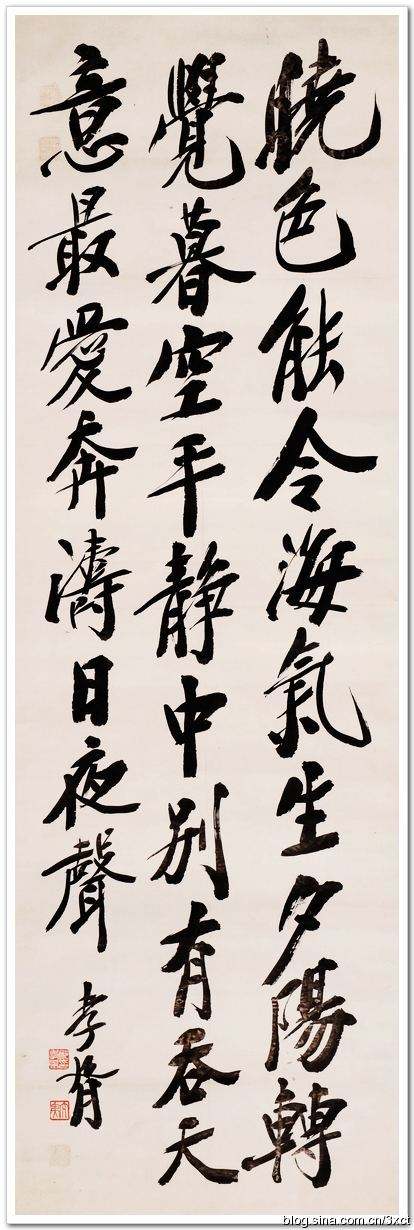 曉色能令海氣生夕陽轉
覺暮空平靜中別有吞天
意最愛奔濤日夜聲
孝胥
blog.sina.com.cn/3xct